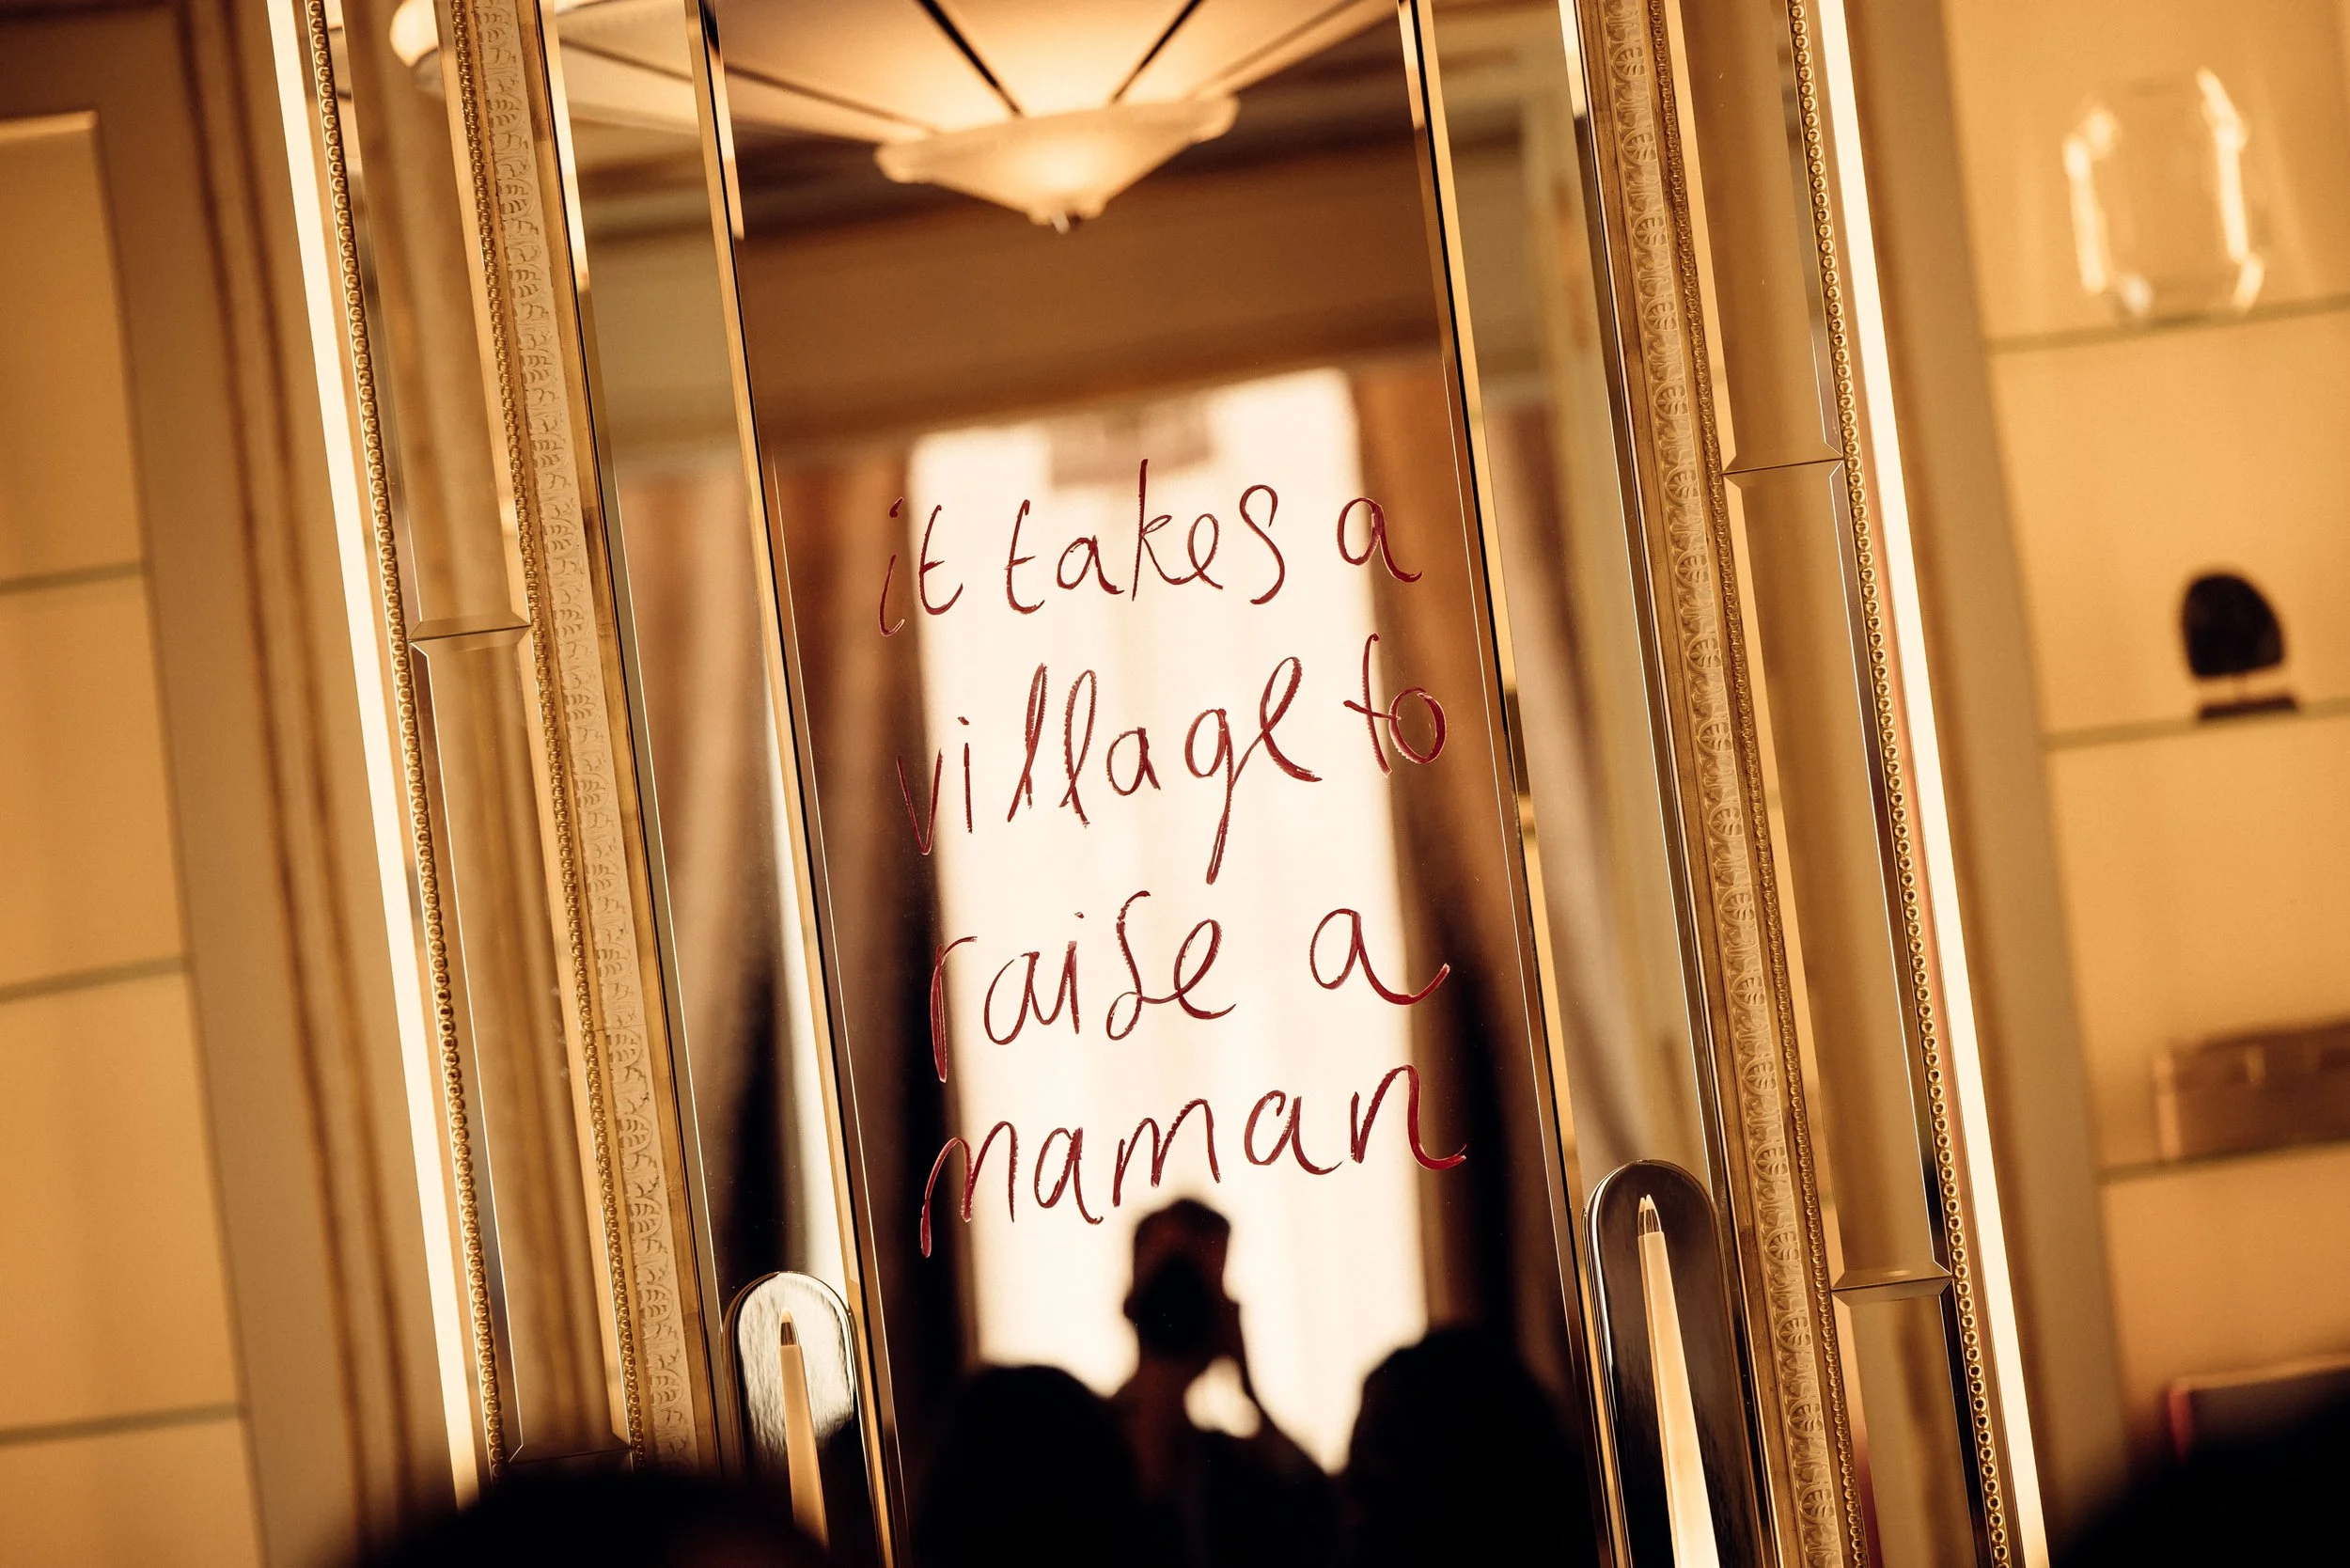 it takes a
village to
raise a
maman